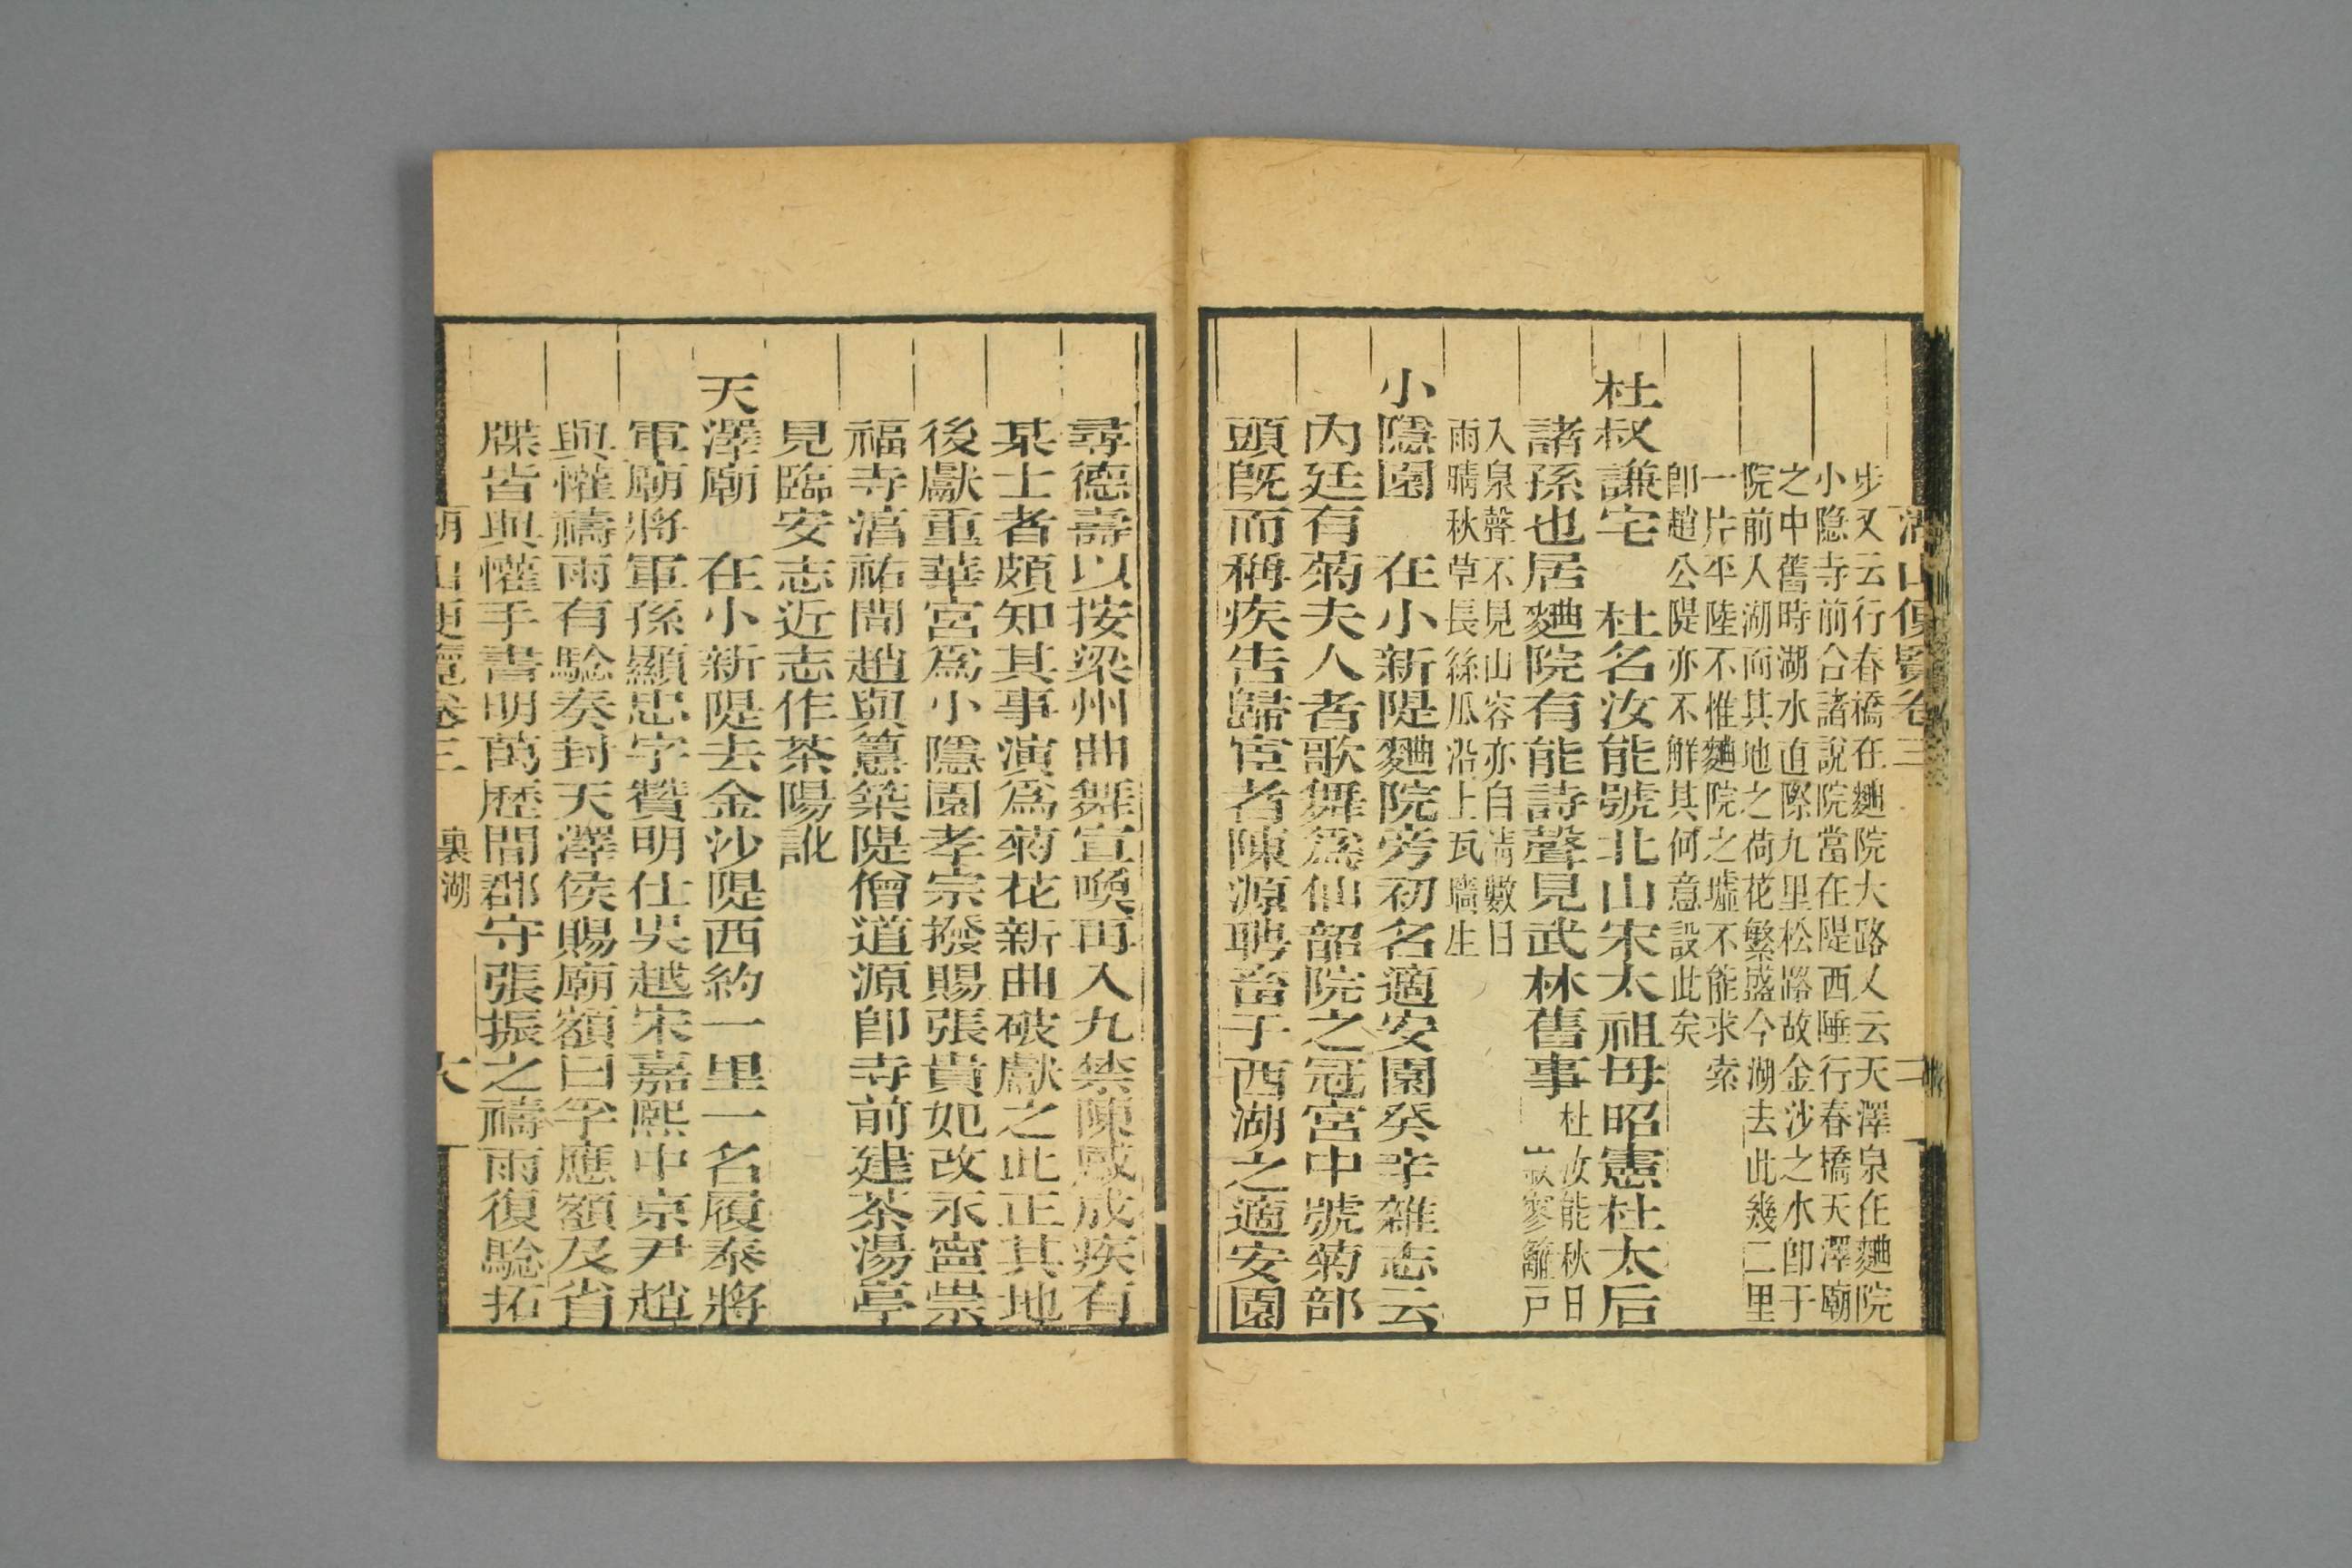 湖山便覽卷三
步又云行春橋在麯院大路又云天澤泉在麯院
小隐寺前合諸說院當在隄西陲行春橋天澤廟
之中舊時湖水直際九里松路故金沙之水卽于
院前人湖而其地之荷花繁盛今湖去此幾二里
一片平陸不惟麯院之墟不能求索
卽趙公隄亦不解其何意設此矣
杜叔謙宅　杜名汝能號北山宋太祖母昭憲杜太后
諸孫也居麯院有能詩聲見武林舊事
杜汝能秋日
寂寥籬戸
入泉聲不見山容亦自淸數日
雨晴秋草長絲瓜沿上瓦牆生
小隱園　在小新隄麯院旁初名適安園癸辛雜志云
内廷有菊夫人者歌舞爲仙韶院之冠宮中號菊部
頭旣而稱疾告歸宦者陳源聘畜于西湖之適安園
尋德壽以按梁州曲舞宣喚再入九禁陳感成疾有
某士者頗知其事演爲菊花新曲破獻之此正其地
後獻重華宮爲小隱園孝宗撥賜張貴妃改永寧崇
福寺淳祐間趙與𥲅築隄僧道源卽寺前建茶湯亭
見臨安志近志作茶陽訛
天澤廟　在小新隄去金沙隄西約一里一名履泰將
軍廟將軍孫顯忠字贊明仕吳越宋嘉熙中京尹趙
與懽禱雨有驗奏封天澤侯賜廟額曰孚應額及省
牒皆與懽手書明萬歷間郡守張振之禱雨復驗拓
湖山便覽卷三　裏湖